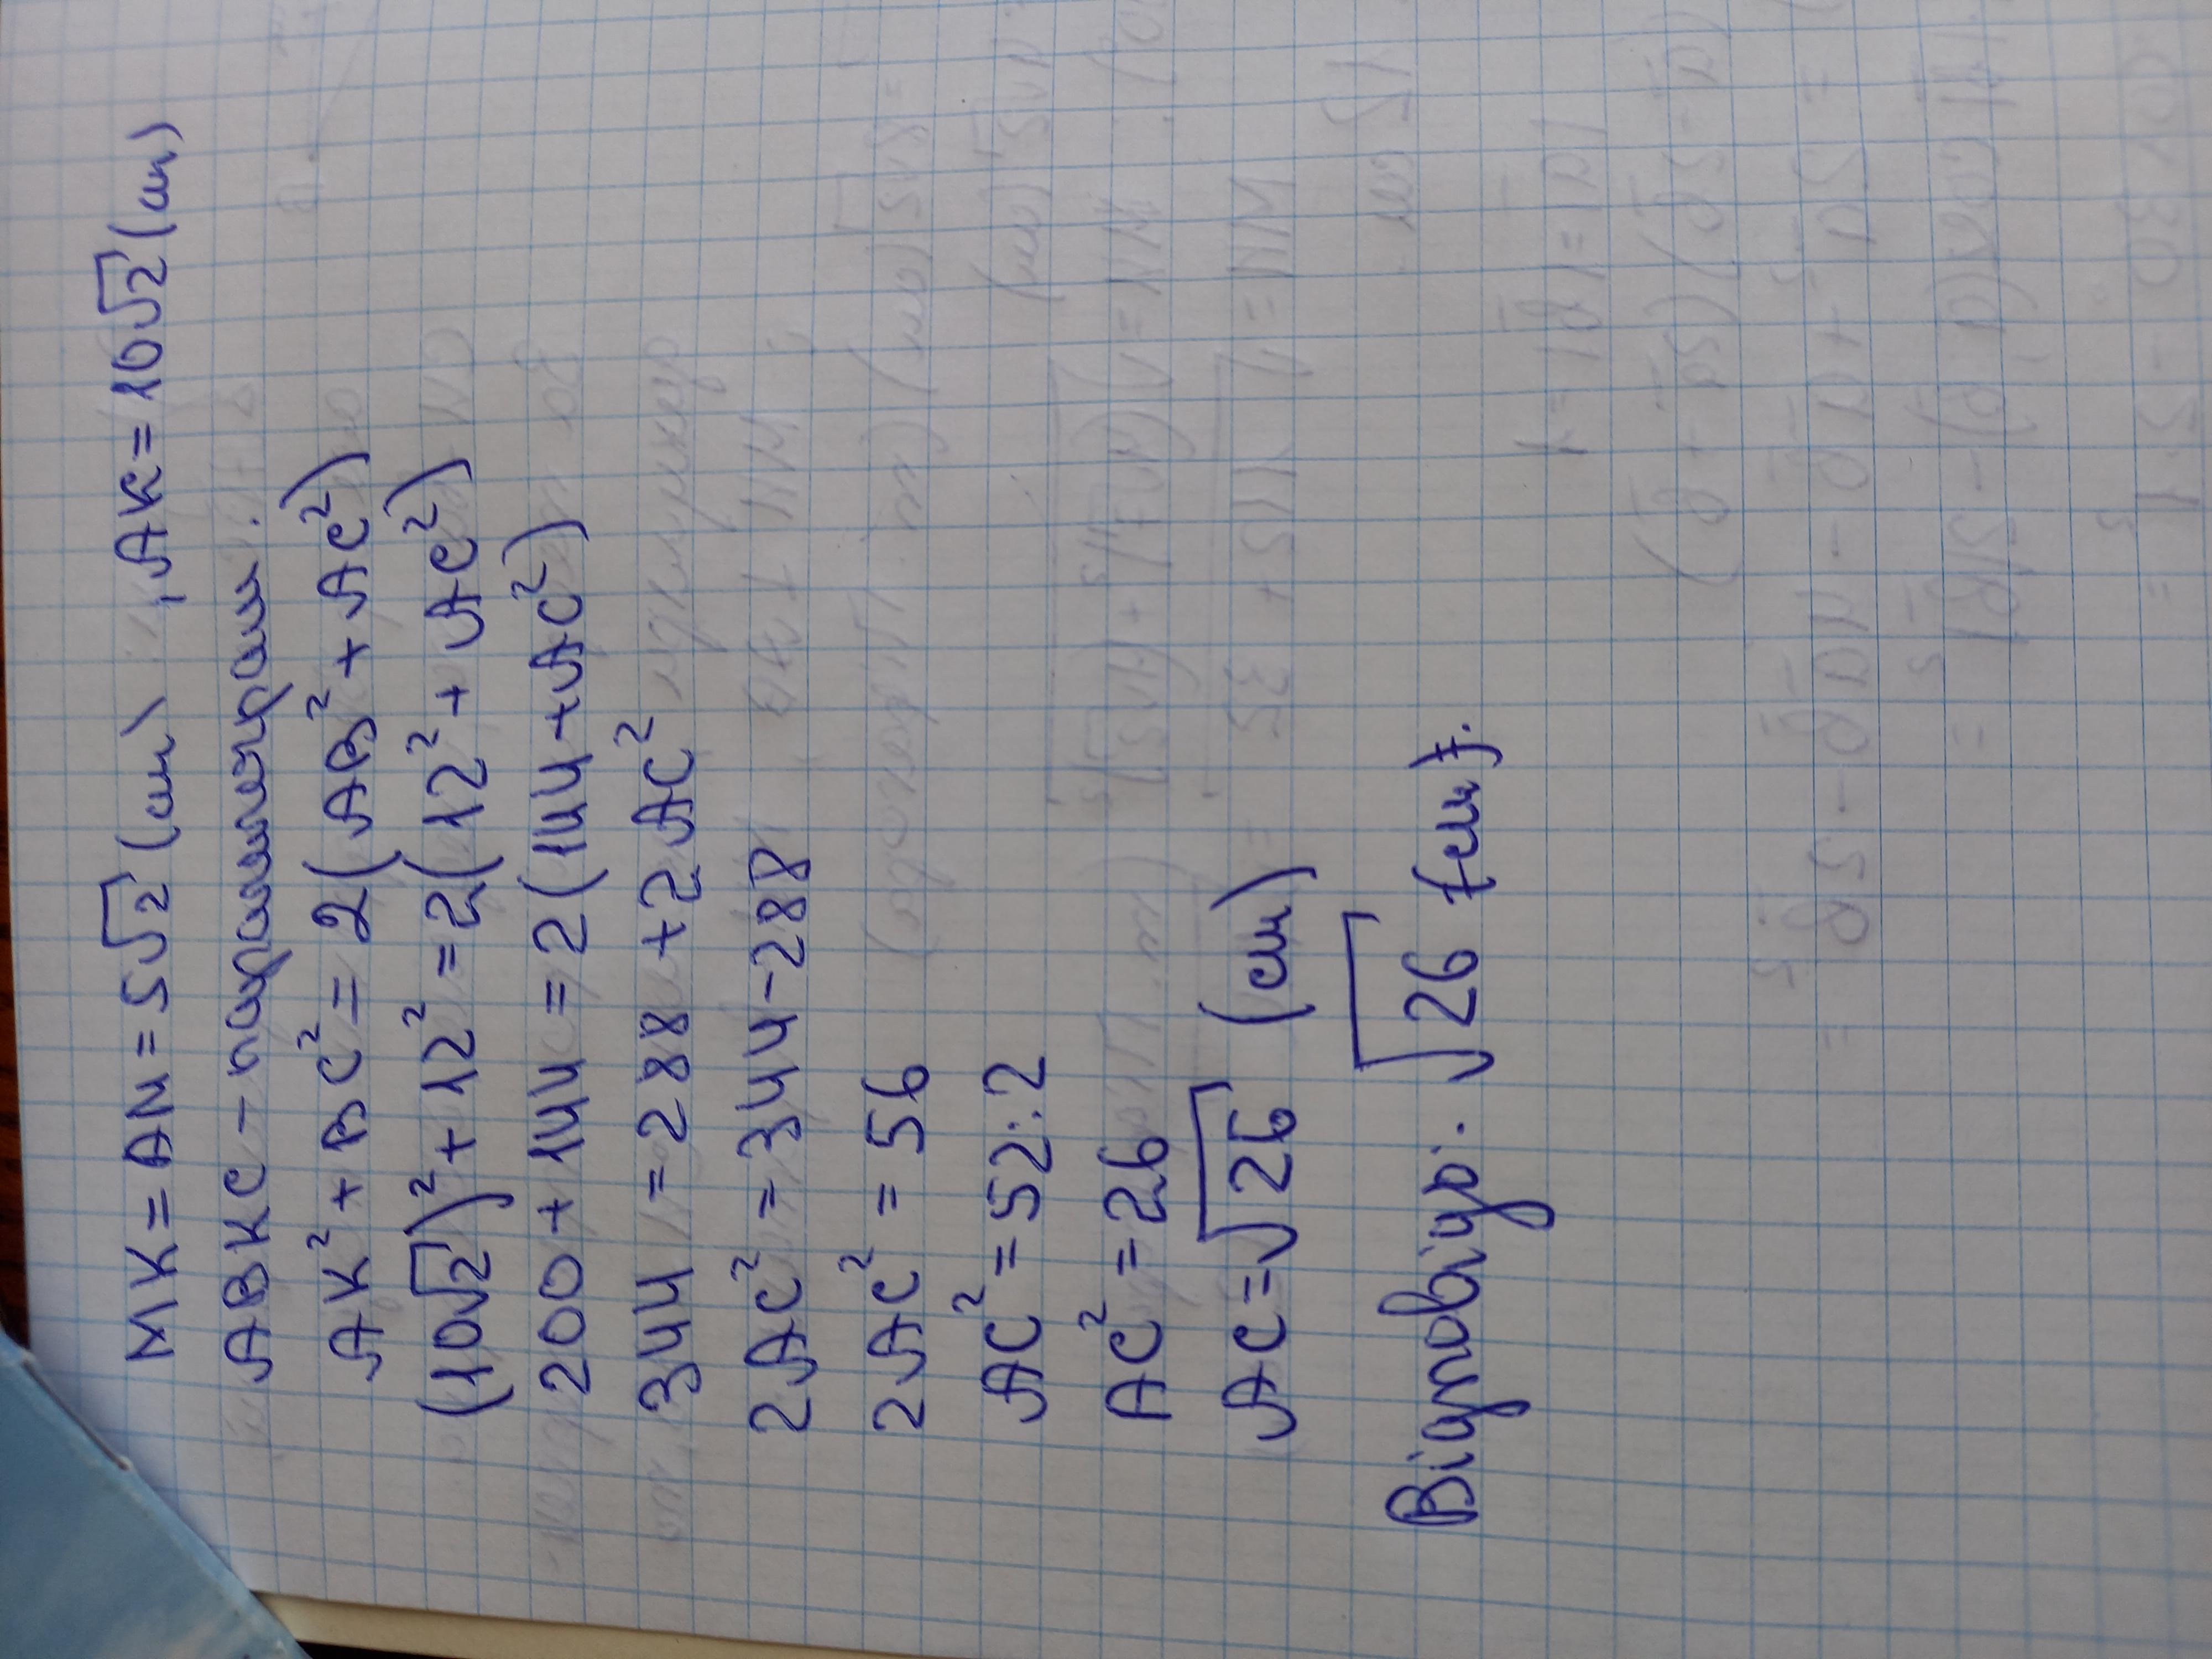 MK = AM = 5√2 (см), AK = 10√2 (см)
ABKC - паралелограм.
AK² + BC² = 2(AB² + AC²)
(10√2)² + 12² = 2(12² + AC²)
200 + 144 = 2(144 + AC²)
344 = 288 + 2AC²
2AC² = 344 - 288
2AC² = 56
AC² = 52:2
AC² = 26
AC = √26 (см)
Відповідь: √26 (см).